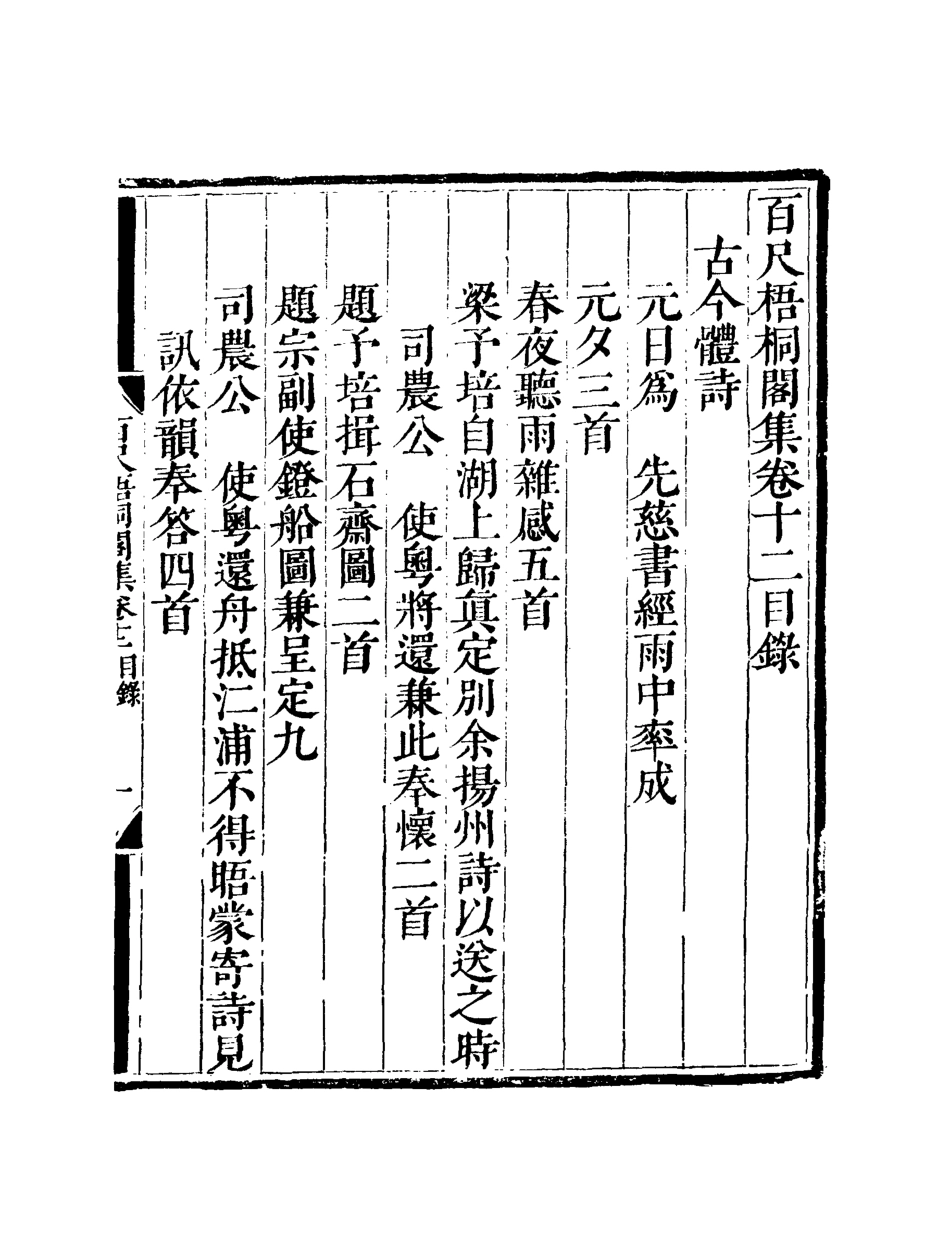 百尺梧桐閣集卷十二目錄
古今體詩
元日為　先慈書經雨中率成
元夕三首
春夜聽雨雜感五首
梁予培自湖上歸眞定別余揚州詩以送之時
司農公　使粵將還兼此奉懷二首
題予培揖石齋圖二首
題宗副使鐙船圖兼呈定九
司農公　使粵還舟抵江浦不得晤蒙寄詩見
訊依韻奉答四首
百尺梧桐閣集卷十二目錄　一